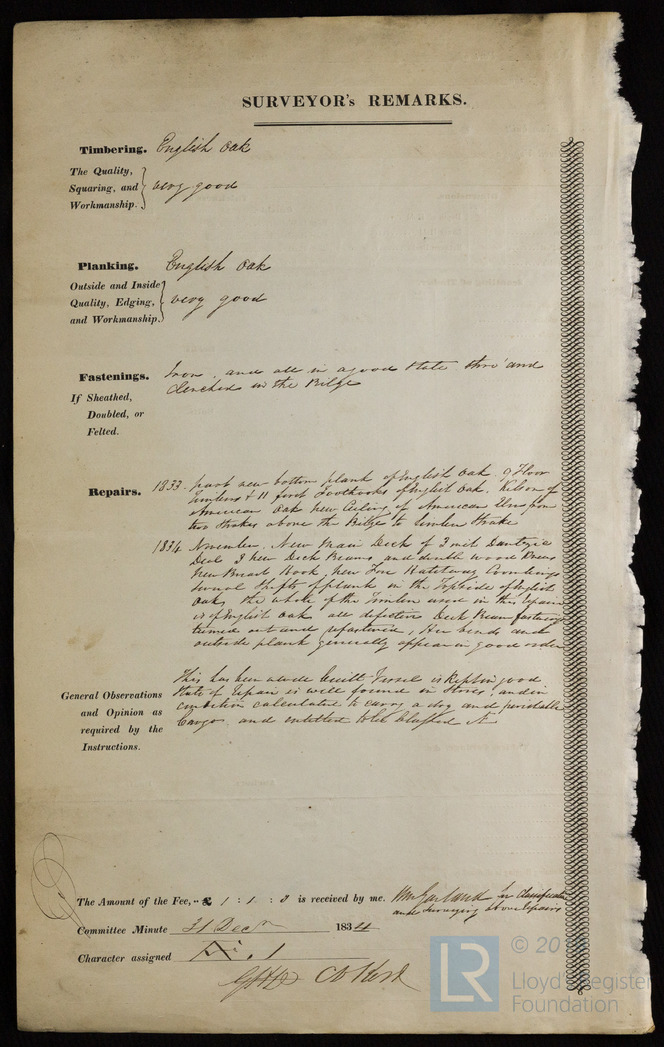 SURVEYOR's REMARKS.
Timbering. English Oak
The Quality,
Squaring, and very good
Workmanship.
Planking. English Oak
Outside and Inside
Quality, Edging, very good
and Workmanship.
Fastenings. Iron, and all in a good state thro' and
If Sheathed, Clenched in the Bilge
Doubled, or
Felted.
Repairs. 1833. part new bottom plank of English Oak. 9 Floor
Timbers & 11 first Foothooks of English Oak. Kelson of
American Oak new Ceiling of American Elm from
two Strakes above the Bilge to Limber Strake
1834 November. New Main Deck of 3 inch Dantzic
Deal 3 new Deck Beams, and double wood Knees
New Breast Hook, New Fore Hatchway Coombings
several shifts of plank in the Topside of English
Oak, the whole of the Timber used in this Repair
is of English Oak all defective Deck Beam fastenings
turned out and refastened, Her bends and
outside plank generally appear in good order
General Observations
and Opinion as
required by the
Instructions.
This has been a well built Vessel is Kept in good
State of repair is well found in Stores and in
condition calculated to carry a dry and perishable
Cargo and entitled to be Classed A
The Amount of the Fee, £ 1 : 1 : 0 is received by me. Wm Garland for Classification
and Surveying above repairs
Committee Minute 31 Decr 1834
Character assigned 1
© 20
LR
Lloyd's Register
Foundation